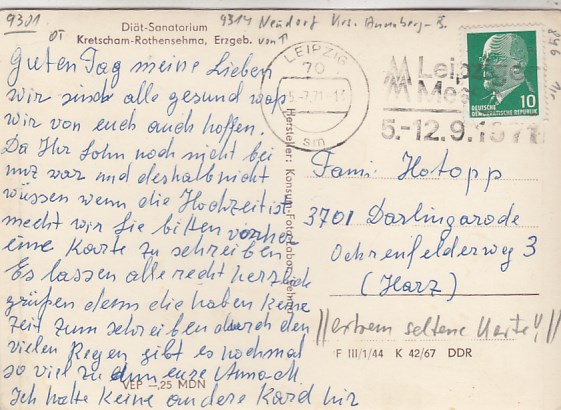 9301
Diät-Sanatorium
Kretscham-Rothensehma, Erzgeb.
9314 Neudorf Krs. Annaberg-B.
OT von
Guten Tag meine Lieben
wir sind alle gesund was
wir von euch auch hoffen.
Da Ihr Sohn noch nicht bei
mir war und deshalb nicht
wüssen wenn die Hochzeit ist
mecht wir Sie bitten vorher
eine Karte zu schreiben
Es lassen alle recht herzlich
grüßen denn die haben keine
Zeit zum schreiben durch den
vielen Regen gibt es nochmal
so viel zu dun eure Anna
Ich hatte keine andere Kard hir
VEB -,25 MDN
Hersteller: Konsum-Fotolabor Sehma
LEIPZIG
70
sm
Leipziger
Messe
5.-12.9.1971
DEUTSCHE
DEMOKRATISCHE REPUBLIK
10
Fami. Hotopp
3701 Darlingarode
Ochrenfelderweg 3
(Harz)
//extrem seltene Karte!//
F III/1/44 K 42/67 DDR